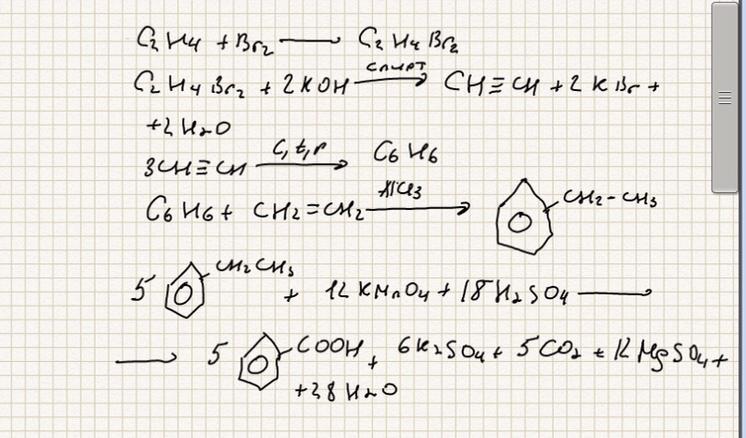 C₂H₄ + Br₂ → C₂H₄Br₂
C₂H₄Br₂ + 2KOH —спирт→ CH≡CH + 2KBr +
+2H₂O
3CH≡CH —C, t, p→ C₆H₆
C₆H₆ + CH₂=CH₂ —AlCl₃→ CH₂-CH₃
5 CH₂CH₃ + 12KMnO₄ + 18H₂SO₄ →
→ 5 COOH + 6K₂SO₄ + 5CO₂ + 12MgSO₄ +
+28H₂O